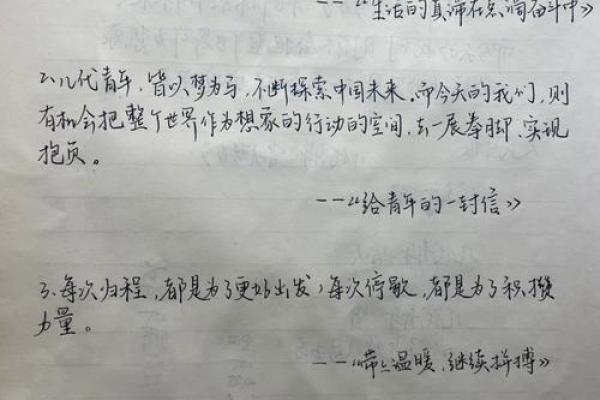 ——《生活的真谛在点滴奋斗中》
2、几代青年，皆以梦为马，不断探索中国未来。而今天的我们，则
有机会把整个世界作为想象的行动的空间，去一展拳脚、实现
抱负。
——《给青年的一封信》
3、每次归程，都是为了更好出发；每次停歇，都是为了积攒
力量。
——《带上温暖，继续拼搏》